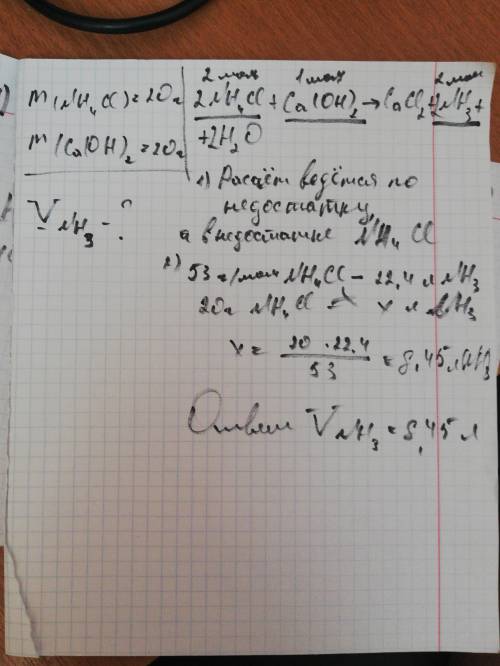 m(NH₄Cl)=20г
m(Ca(OH)₂=20г
V NH₃ - ?
2 моль 1 моль 2 моль
2NH₄Cl + Ca(OH)₂ → CaCl₂ + 2NH₃ +
+2H₂O
1) Расчёт ведётся по
недостатку,
а в недостатке NH₄Cl
2) 53 г/моль NH₄Cl – 22,4 л NH₃
20г NH₄Cl – x л NH₃
x = 20 · 22,4 / 53 = 8,45 л NH₃
Ответ V NH₃ = 8,45 л